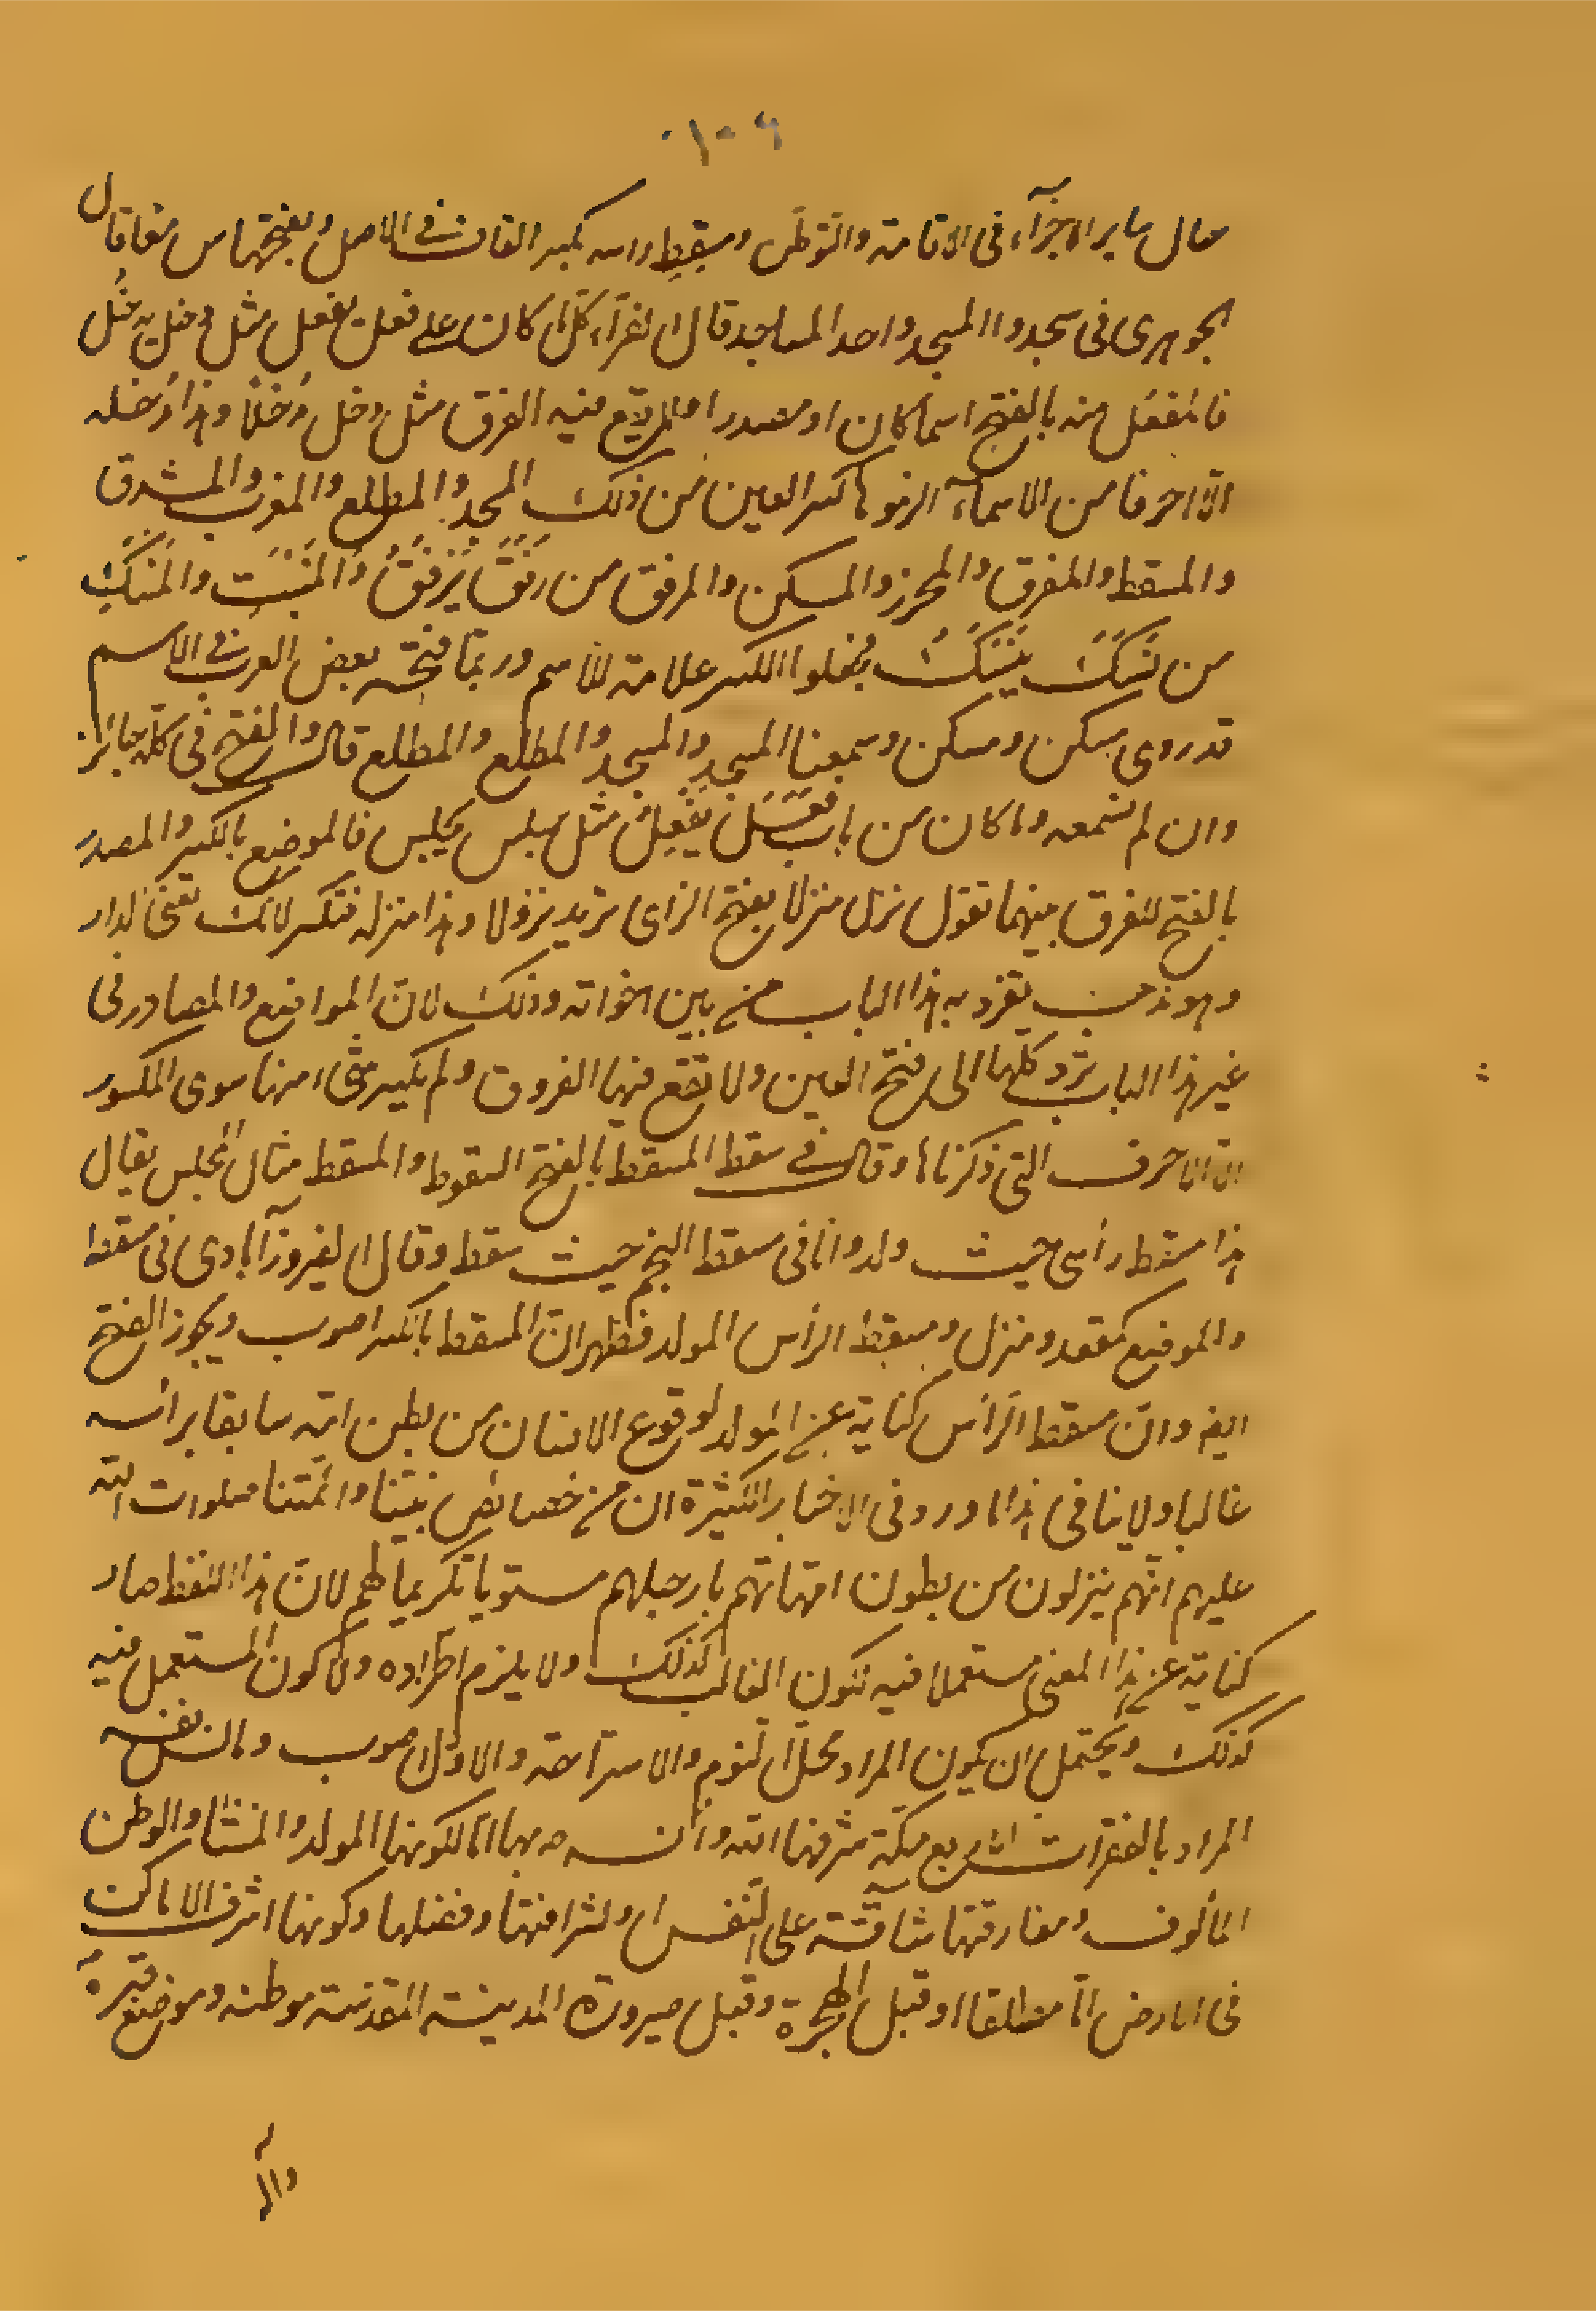 ١٠٦
حال ساير الاجزآء فى الاقامة والتوطّن ومسقِط راسه بكسر القاف فى الاصل وبفتحها س معا قال
الجوهرى فى سجد والمسجد واحد المساجد قال الفرآء كلّ ما كان على فعل يفعل مثل دخل يدخُل
فالمفعَل منه بالفتح اسما كان او مصدرا ولم يقع فيه الفرق مثل دخل مَدخلا وهذا مَدخله
الّا احرفا من الاسمآء الزموها كسر العين من ذلك المسجد والمطلع والمغرب والمشرق
والمسقط والمفرق والمجزر والمسكن والمرفق من رَفَقَ يَرْفُقُ والمَنبِت والمَنسِك
من نَسَكَ يَنسُكُ فجعلوا الكسر علامة للاسم وربّما فتحه بعض العرب فى الاسم
قد روى مسكن ومسكن وسمعنا المسجِد والمسجَد والمطلع والمطلع قال والفتح فى كلّه جائز
وان لم نسمعه وما كان من باب فَعَلَ يَفْعِلُ مثل جلس يجلس فالموضع بالكسر والمصدر
بالفتح للفرق بينهما تقول نزل منزلا بفتح الزاى تريد نزولا وهذا منزله فتكسر لانّك تعنى الدار
وهو مذهب يتفرّد به هذا الباب من بين اخواته وذلك لانّ المواضع والمصادر فى
غير هذا الباب تردّ كلّها الى فتح العين ولا يقع فيها الفروق ولم يكسر شىء منها سوى المكسور
الّا الاحرف التى ذكرناها وقال فى سقط المسقط بالفتح السقوط والمسقط مثال المجلس يقال
هذا مسقط رأسى حيث ولد وانا فى مسقط النجم حيث سقط وقال الفيروزآبادى فى سقط
والموضع كمقعد ومنزل ومسقط الرأس المولد فظهر انّ المسقط بالكسر اصوب ويجوز الفتح
ايضا وانّ مسقط الرأس كناية عن المولد لوقوع الانسان من بطن امّه سابقا برأسه
غالبا ولا ينافى هذا ما ورد فى الاخبار الكثيرة ان من خصايص نبيّنا وائمّتنا صلوات الله
عليهم انّهم ينزلون من بطون امّهاتهم بارجلهم مستويا تكريما لهم لانّ هذا اللفظ صار
كناية عن هذا المعنى مستعملا فيه لكون الغالب كذلك ولا يلزم اطّراده ولا كون المستعمل فيه
كذلك ويحتمل ان يكون المراد محلّ النوم والاستراحة والاوّل اصوب ومانس نفسه
المراد بالفقرات الاربع مكّة شرفها الله وانسه بها امّا لكونها المولد والمنشأ والوطن
المألوف ومفارقتها شاقّة على النفس او لشرافتها وفضلها وكونها اشرف الاماكن
فى الارض امّا مطلقا او قبل الهجرة وقبل صيرورة المدينة المقدّسة موطنه وموضع قبره